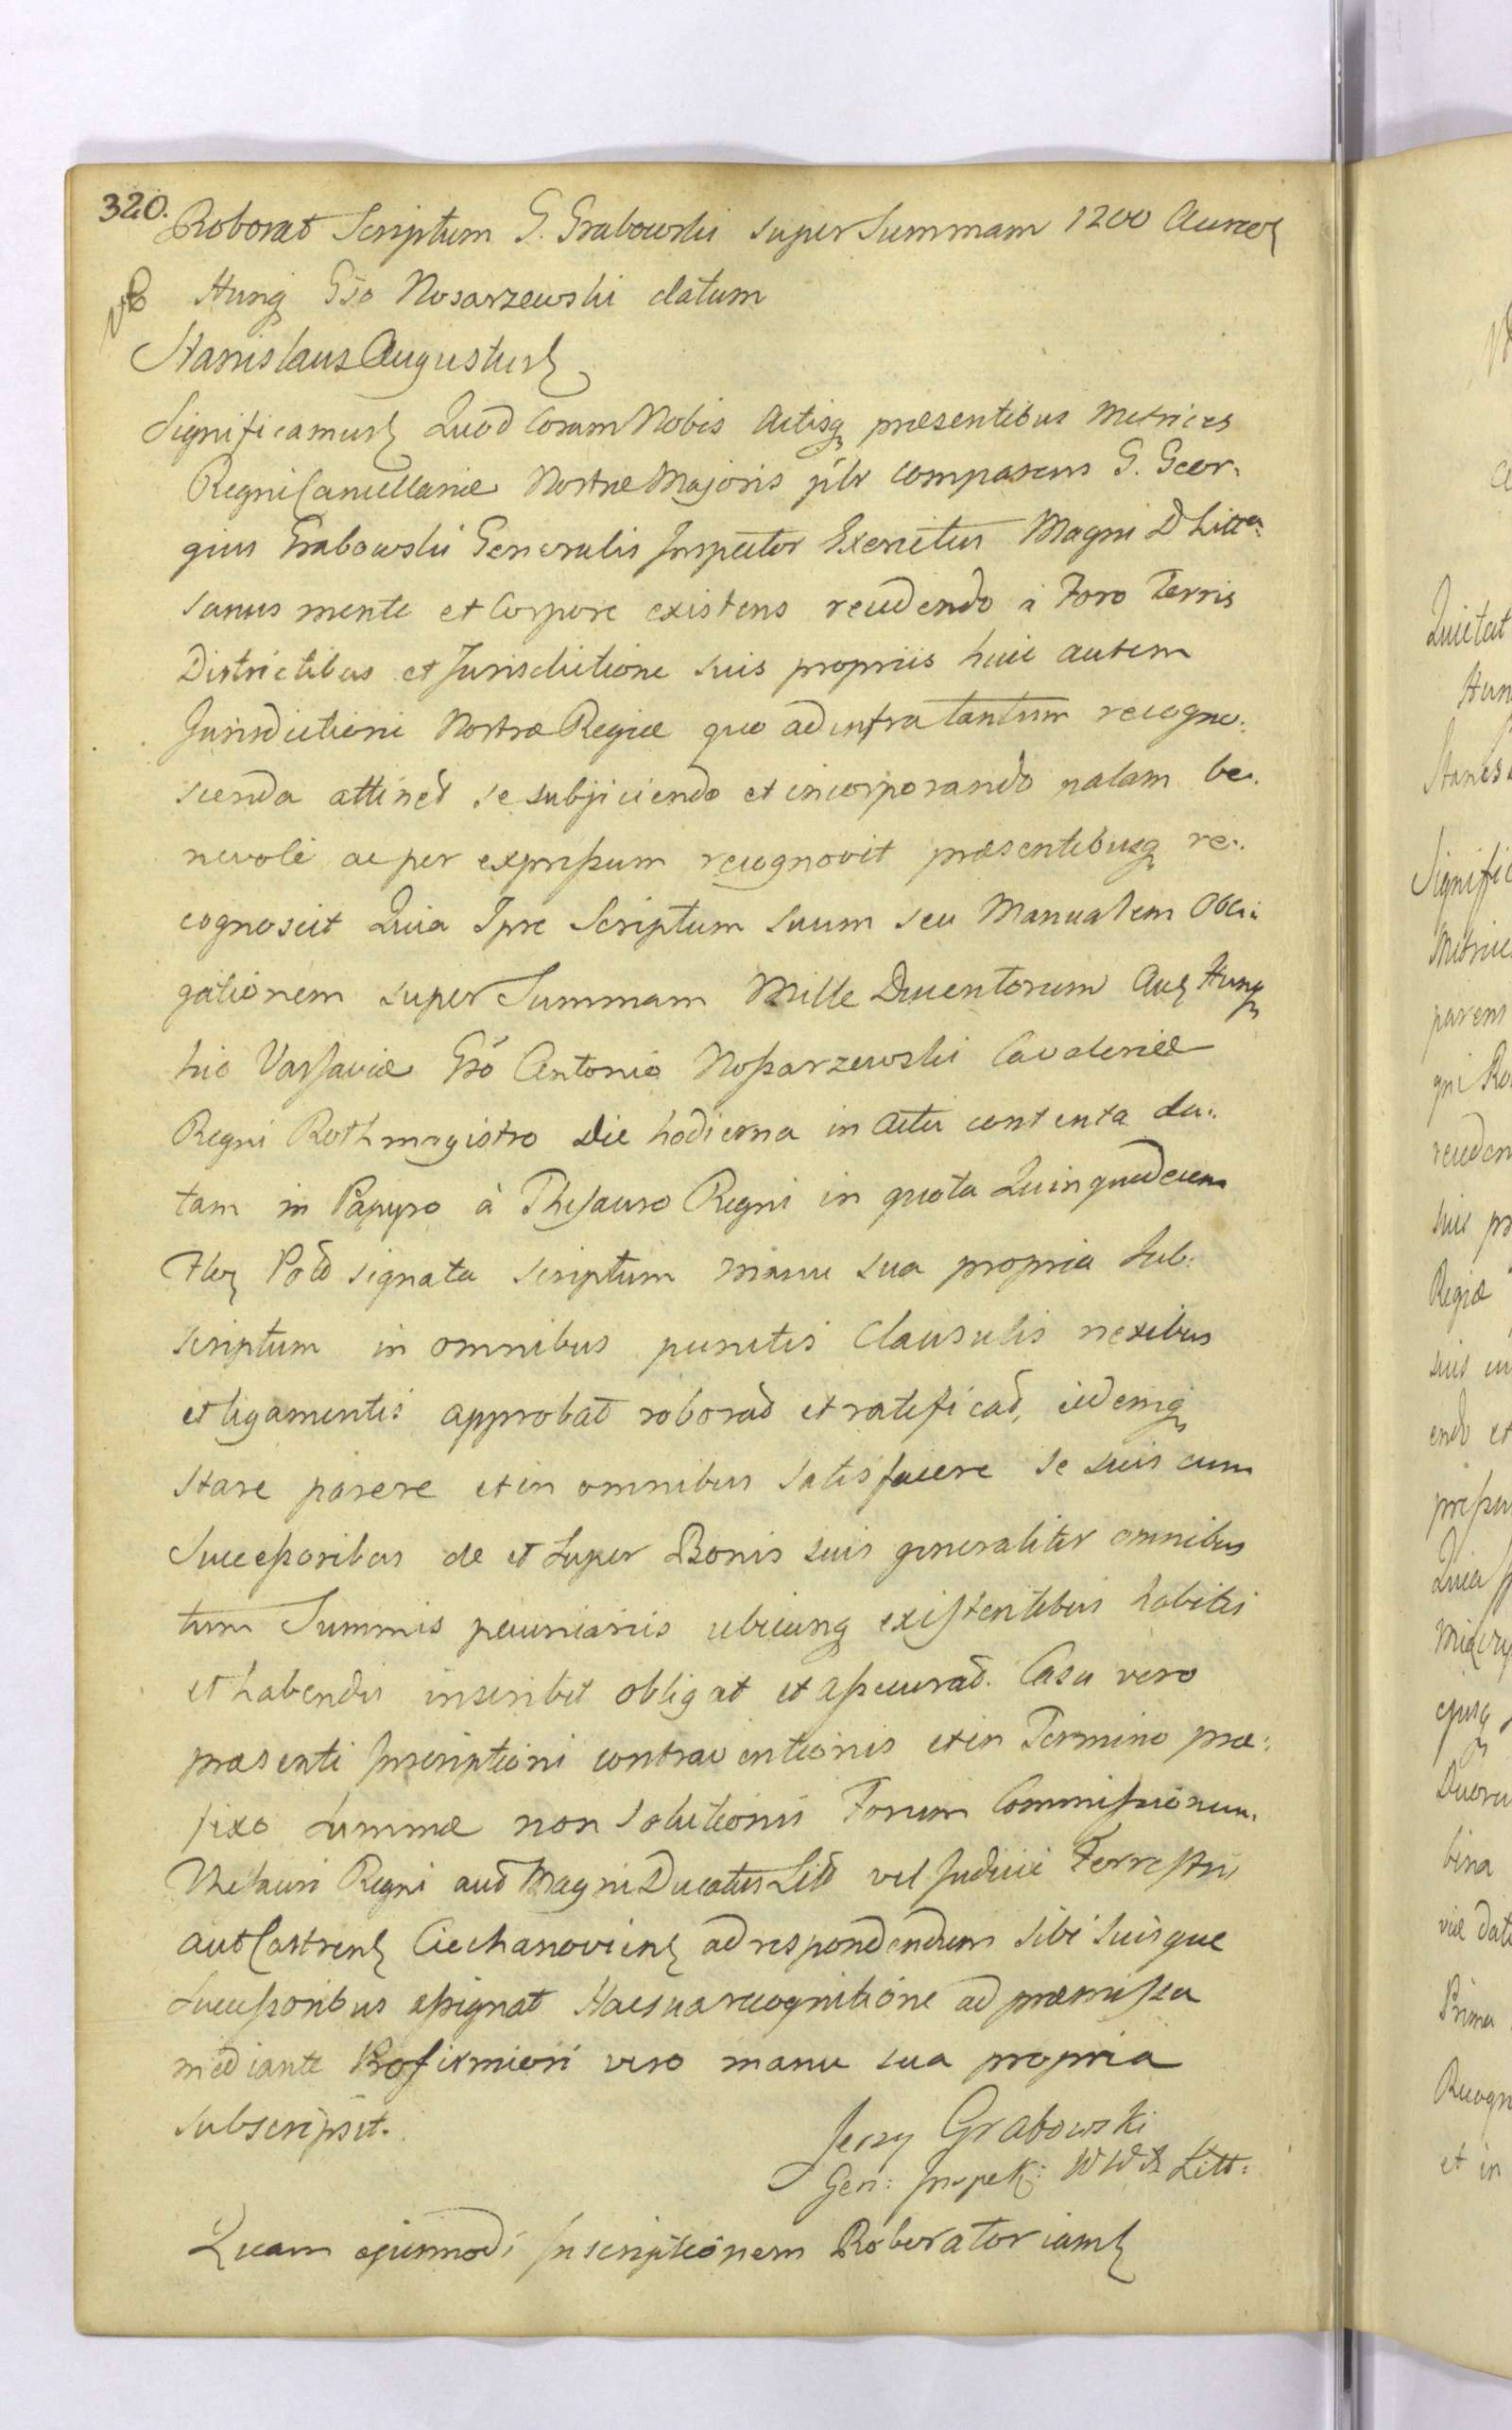 320.
Roborat Scriptum G. Grabowski super Summam 1200 Aureor
NB Hung Gso Nosarzewski datum
Stanislaus Augustus
Significamus Quod Coram Nobis Actisq praesentibus Metrices
Regni Cancellariæ Nostræ Majoris plr comparens G. Geor:
gius Grabowski Generalis Inspector Exercitus Magni D Litt
sanus mente et Corpore existens recedendo a Foro Terris
Districtibus et Jurisdictione suis propriis huic autem
Jurisdictioni Nostræ Regiæ quo ad infra tantum recogno:
scenda attinet se subjiciendo et incorporando palam be:
nevole ac per expressum recognovit praesentibusq re:
cognoscit Quia Ipse Scriptum suum seu Manualem Obli:
gationem super Summam Mille Ducentorum Aur Hung
hic Varsaviæ Gso Antonio Nossarzewski Cavaleriæ
Regni Rothmagistro die hodierna in Actu contenta da:
tam in Papyro à Thesauro Regni in quota Quinquadecem
Flor Pold signata scriptum manu sua propria sub:
scriptum in omnibus punctis Clausulis nexibus
et ligamentis approbat roborat et ratificat, eidemq
stare parere et in omnibus satisfacere se suis cum
Successoribus de et super Bonis suis generaliter omnibus
tum Summis pecuniariis ubicunq existentibus habitis
et habendis inscribit obligat et assecurat. Casu vero
praesenti Inscriptioni contraventionis et in Termino præ:
fixo Summæ non Solutionis Forum Commissionum
Thesauri Regni aut Magni Ducatus Litt vel Judicii Terrestris
aut Castrens Ciechanoviens ad respondendum sibi suisque
Successoribus assignat Hac sua recognitione ad praemissa
mediante Pro firmiori vero manu sua propria
subscripsit.
Jerzy Grabowski
Gen: Inspek: W W X Litt:
Quam ejusmodi Inscriptionem Roboratoriam